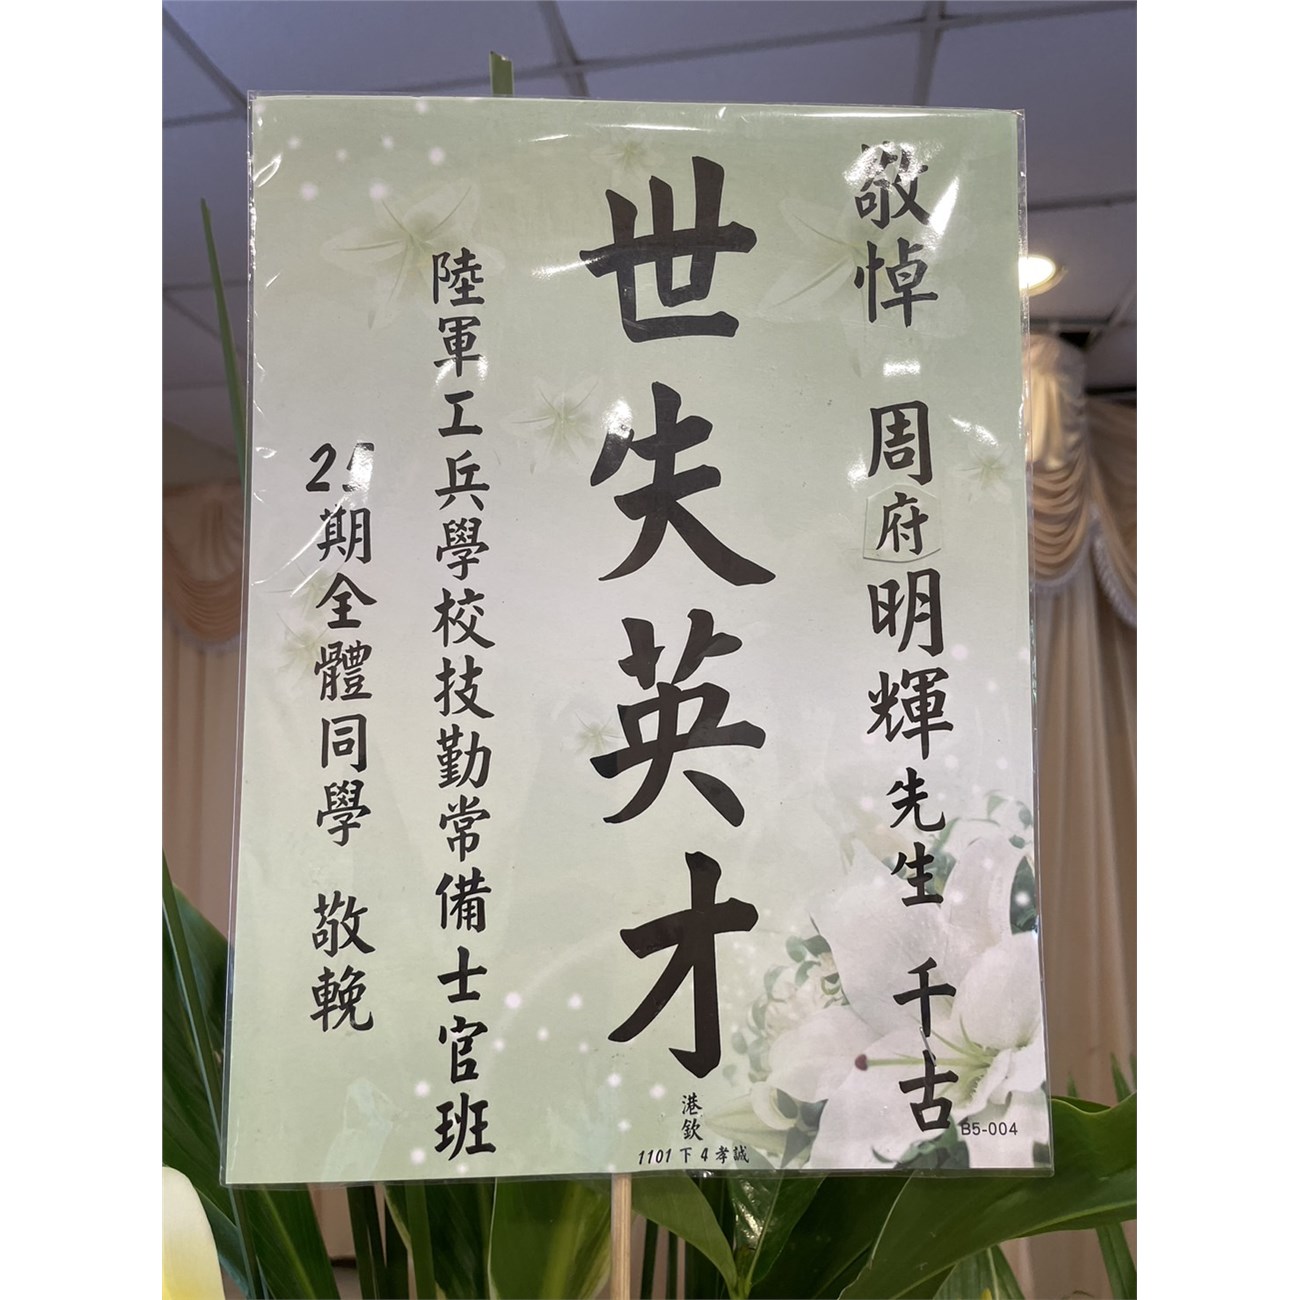 敬悼 周府明輝先生 千古
世失英才
陸軍工兵學校技勤常備士官班
25期全體同學 敬輓
港欽
1101下4孝誠
B5-004